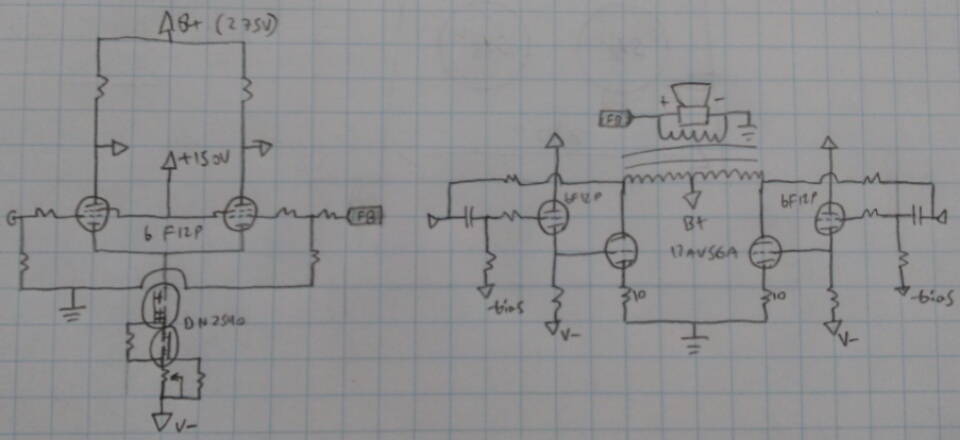 B+ (275V)
+150V
G
6F12P
FB
DN2540
V-
FB
+ -
6F12P
6F12P
B+
17AV5GA
-bias
10
10
-bias
V-
V-